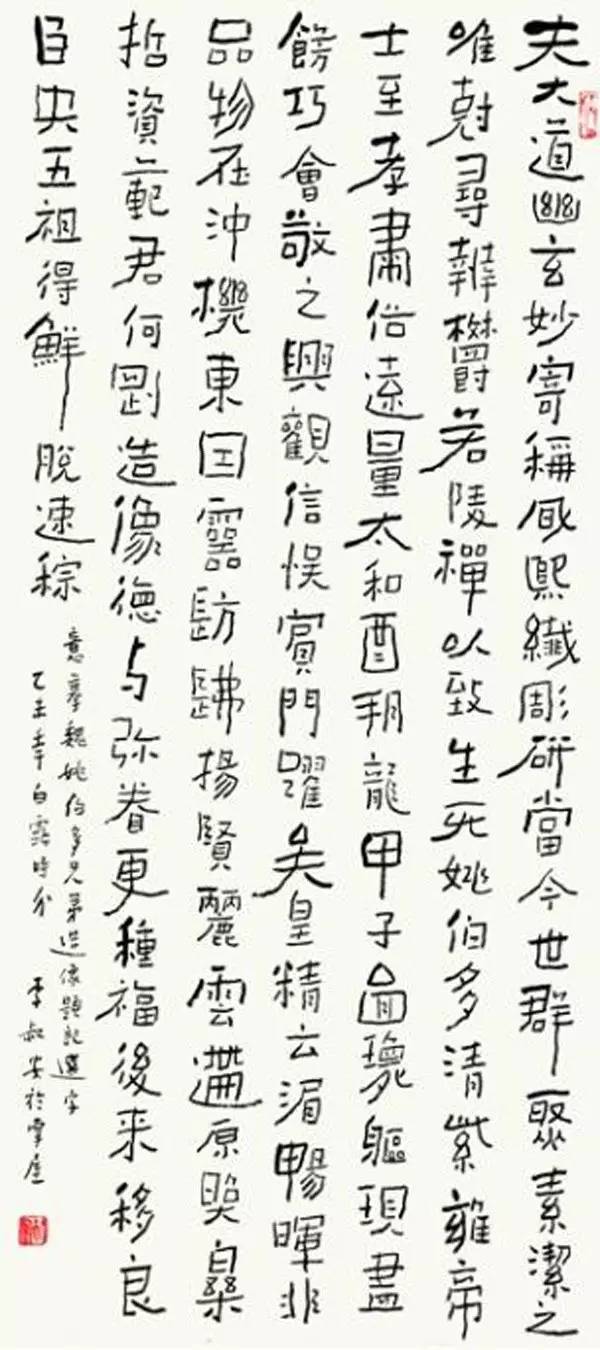 夫大道幽玄妙寄稱風熙纖彫研當今世群聚素潔之
唯尅尋辨欝若陵禪以致生死姚伯多清紫離帝
士至孝肅俗遠量太和酉朔龍甲子啚瓌軀現盡
餝巧會敬之興觀信悮實門躍矣皇精云湄暢暉非
品物在沖機東囯靈訪歸揚賢麗雲遷原照
哲資範君何劉造像德与弥眷更種福後来移良
自央五祖得鮮脫速綜
意摹魏姚伯多兄弟造像題記選字
乙未年白露時分 李叔安於